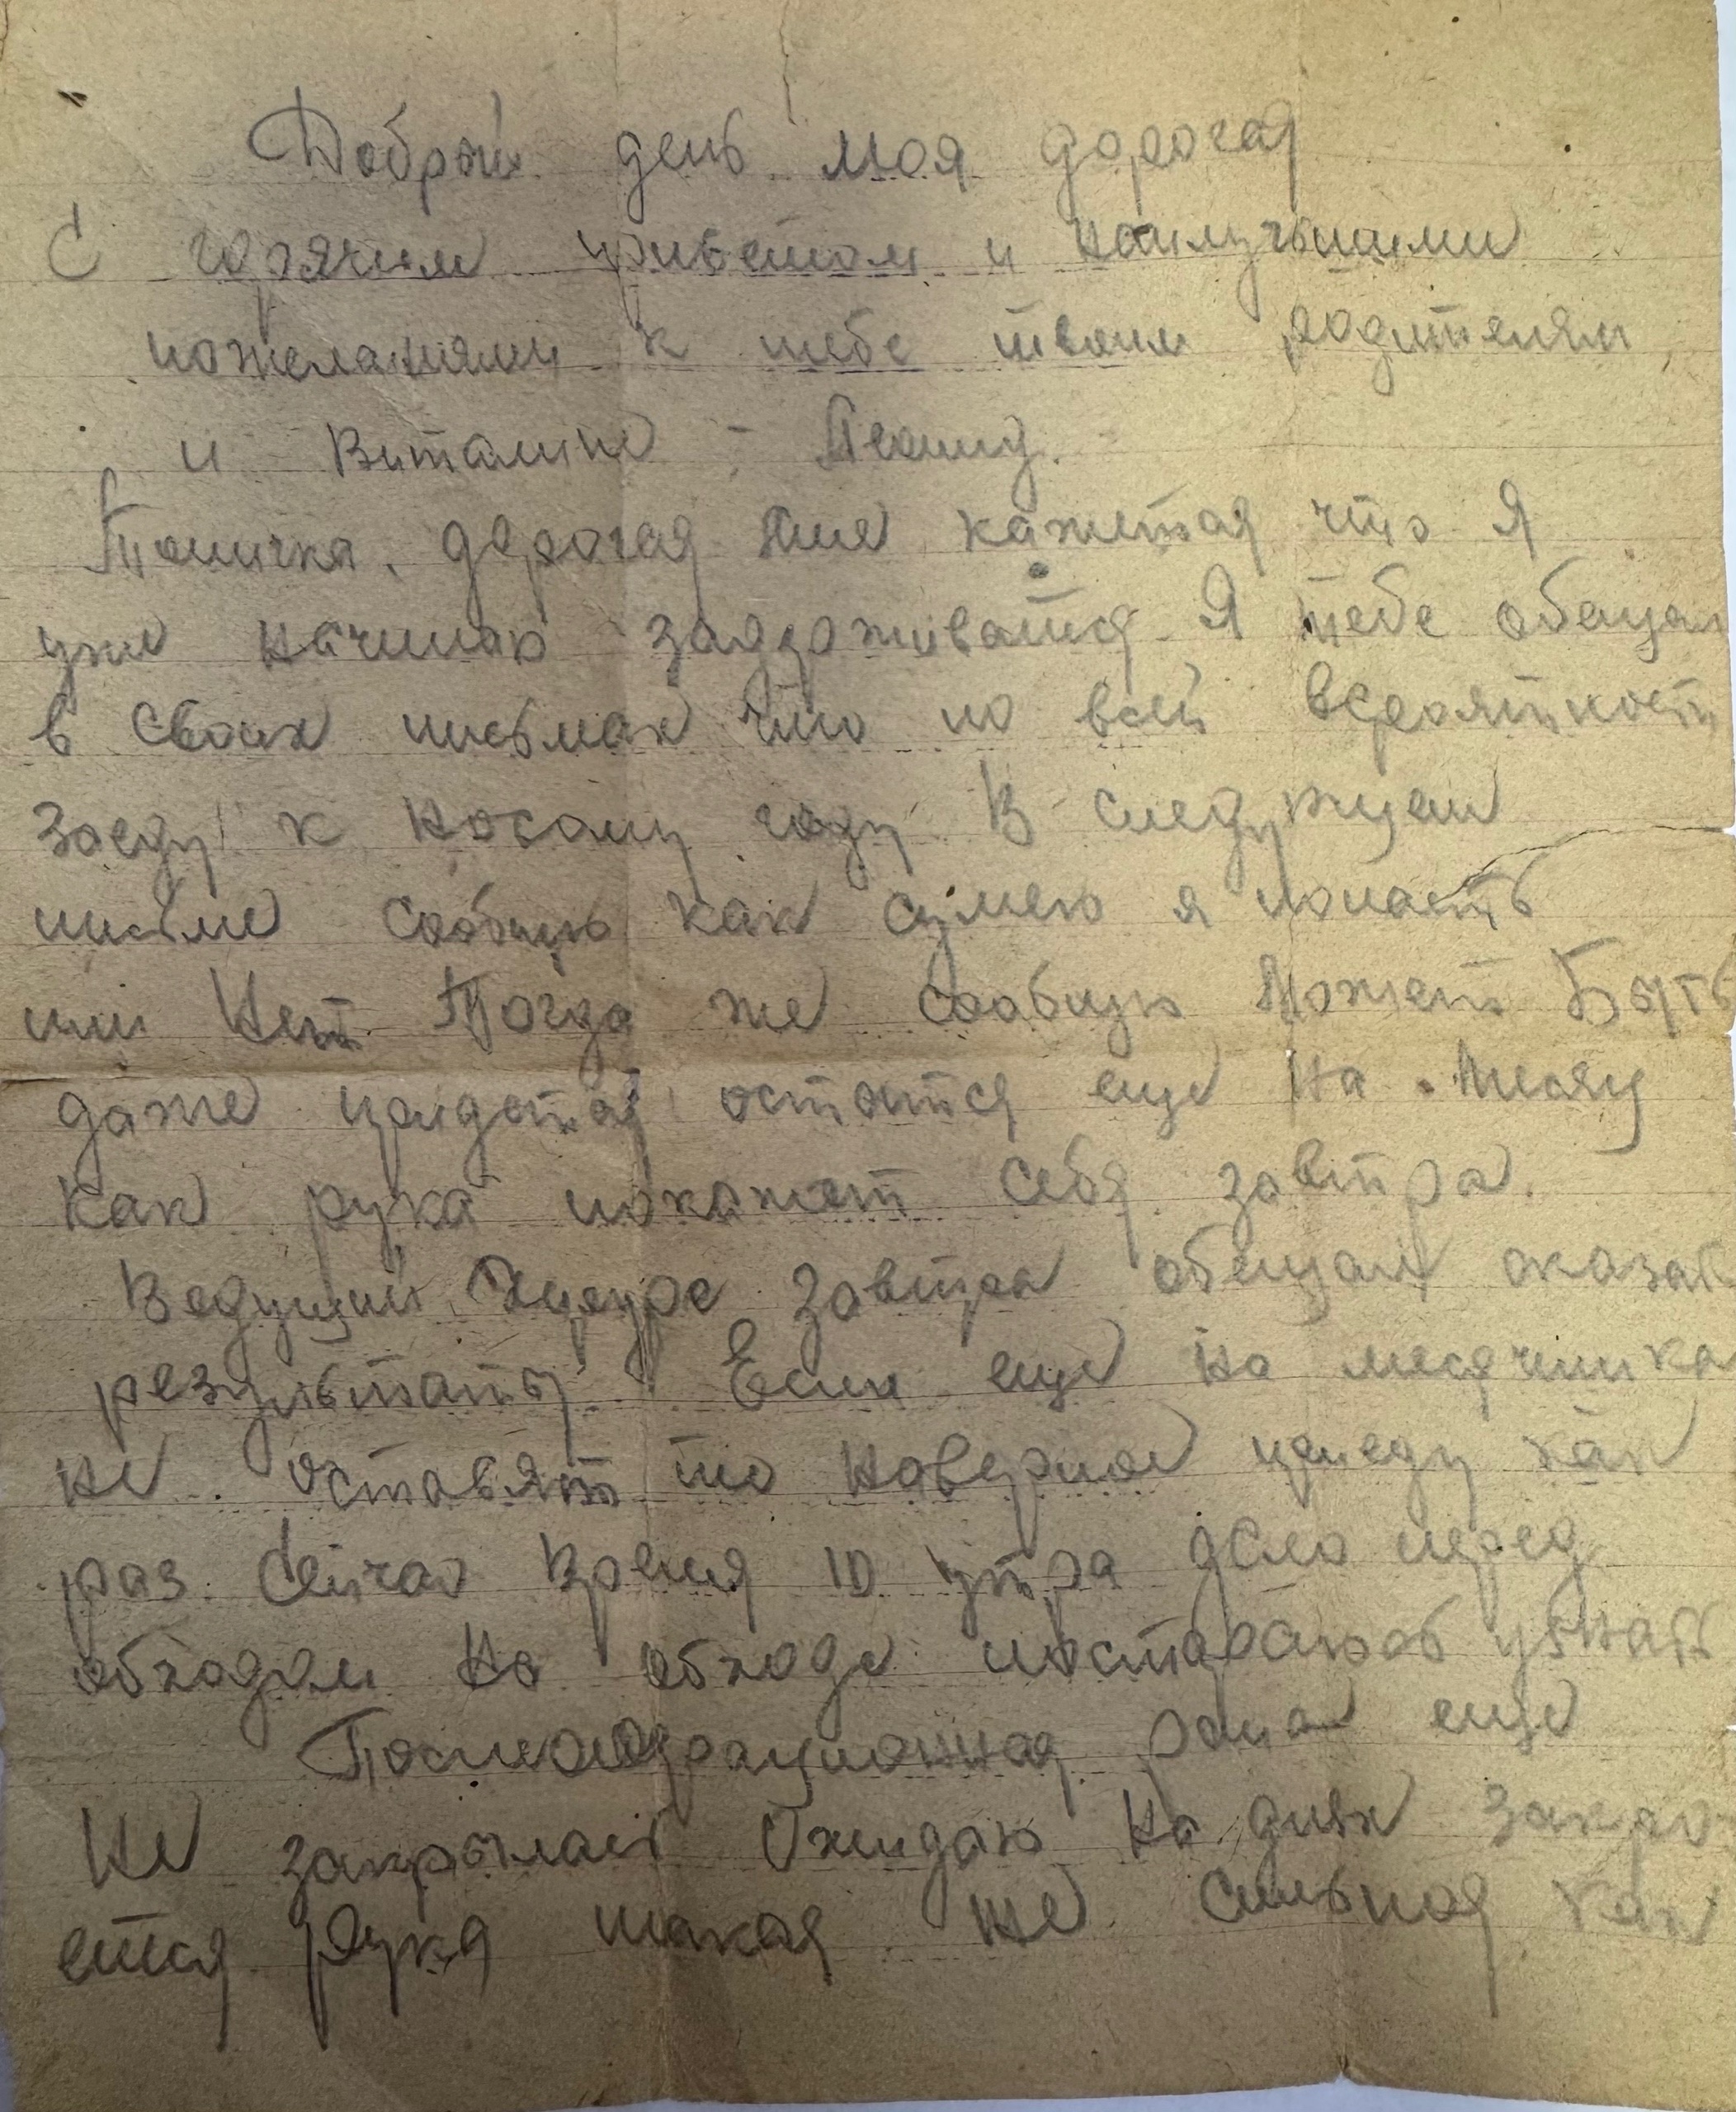 Добрый день моя дорогая
С горячим приветом и наилучшими
пожеланиями к тебе твоим родителям
и Виталине - Леонид.
Тоничка, дорогая мне кажется что я
уже начинаю задерживатся Я тебе обещал
в своих письмах что по всей вероятност
заеду к новому году В следующем
письме сообщу как сумею я попасть
или Нет Тогда же сообщу Может Быть
даже придется остатся еще на месяц
Как рука покажет себя завтра.
Ведущий завтра обещал сказать
результаты Если еще на месячишка
не оставят то наверное приеду как
раз Сейчас Время 10 утра дело перед
обходом На обходе постараюсь узнать
Послеоперационная рана еще
Не закрылась Ожидаю На днях закро
ется Рука такая же сильная как